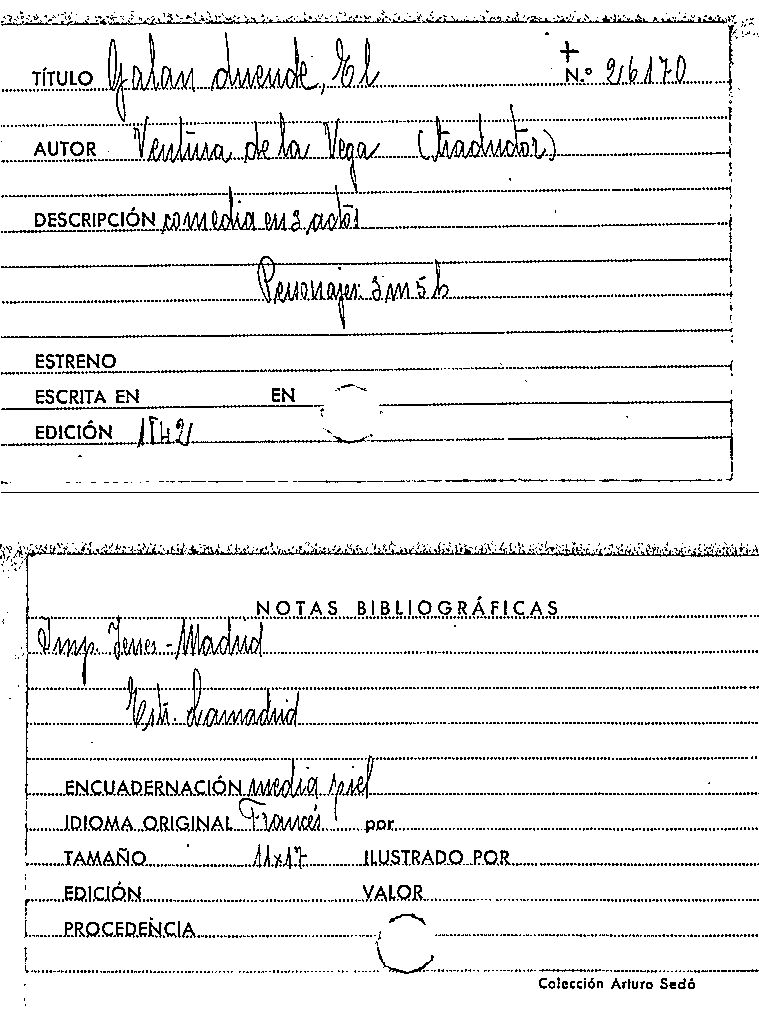 TÍTULO Galan duende, El + N.º 26170
AUTOR Ventura de la Vega (traductor)
DESCRIPCIÓN comedia en 3 actos
Personajes 3 m 5 h
ESTRENO
ESCRITA EN EN
EDICIÓN 1842
NOTAS BIBLIOGRÁFICAS
Imp. Yenes - Madrid
Estr. Lamadrid
ENCUADERNACIÓN media piel
IDIOMA ORIGINAL Francés por
TAMAÑO 11x17 ILUSTRADO POR
EDICIÓN VALOR
PROCEDENCIA
Colección Arturo Sedó